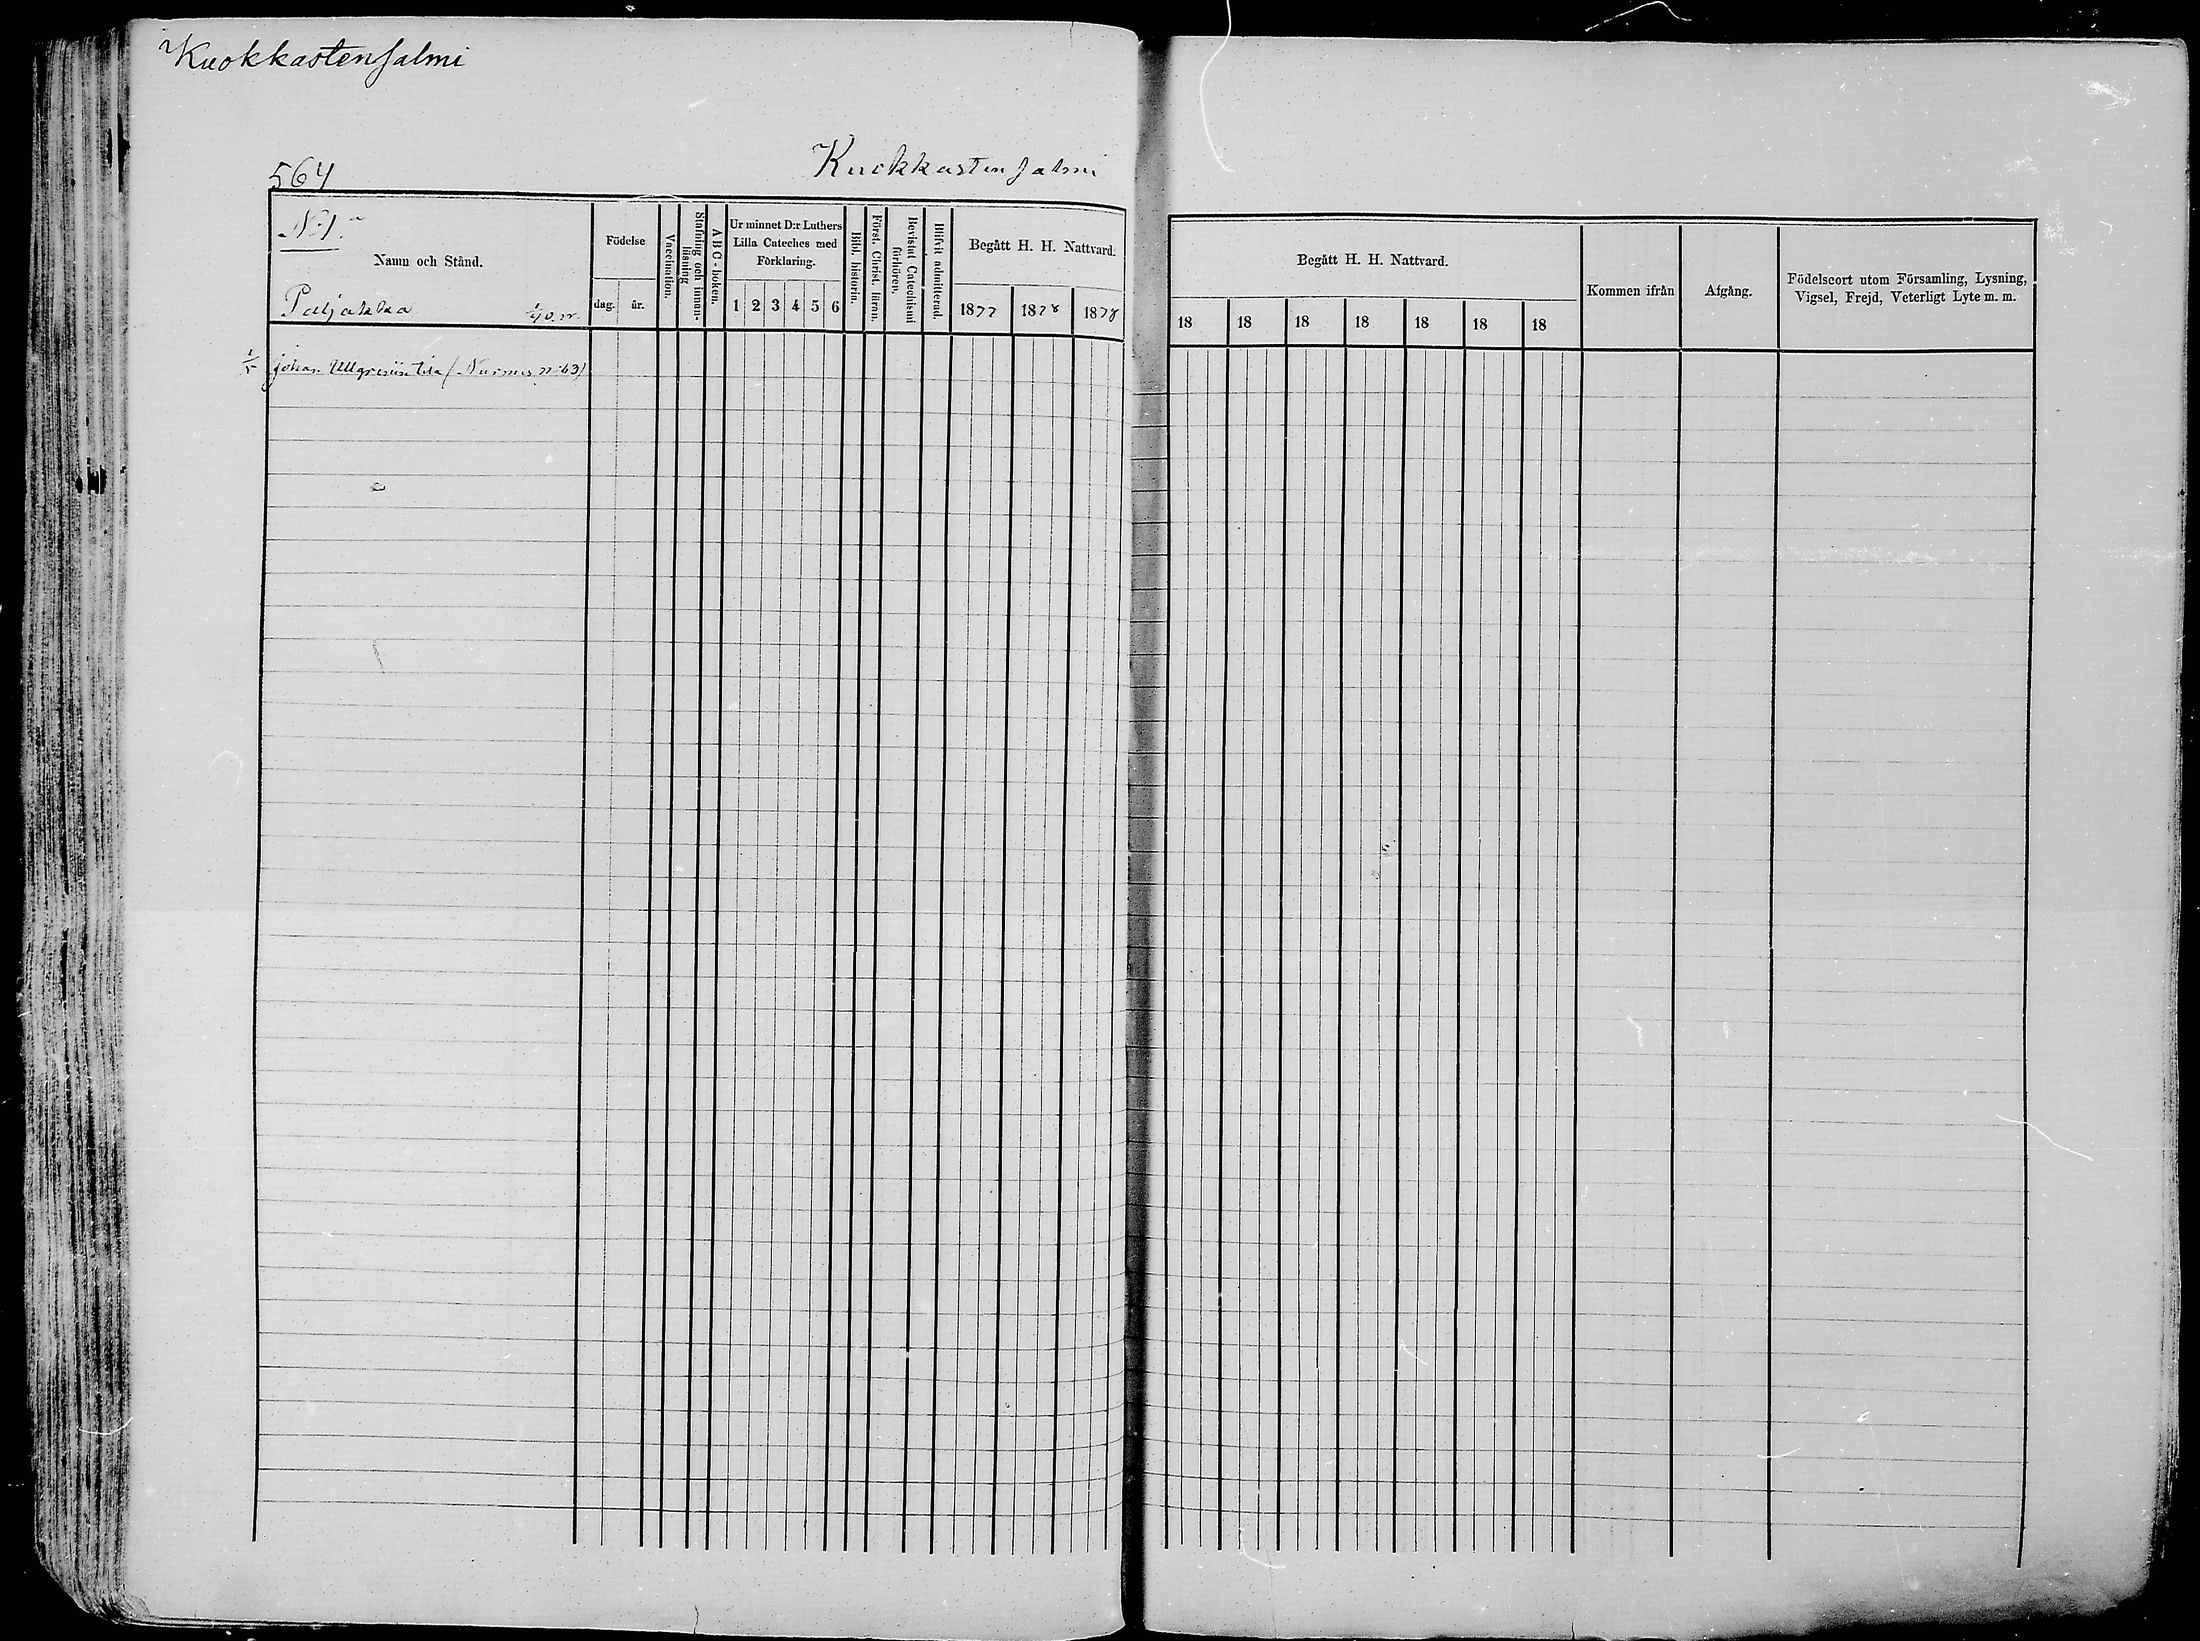 Kuokkastensalmi
564
Kuokkastensalmi
N:o 1.a
Namn och Stånd.
Paljakka
Födelse
dag.
år.
Vaccination.
Stafning och innan-
läsning
A B C - boken.
Ur minnet D:r Luthers
Lilla Cateches med
Förklaring.
1 2 3 4 5 6
Bibl. historia.
Först. Christ. läran.
Bevistat Catechismi
förhören.
Blifvit admitterad.
Begått H. H. Nattvard.
1877 1878 1878
Johan Ullgrenin tila (Nurmes n:o 63)
Begått H. H. Nattvard.
18 18 18 18 18 18 18
Kommen ifrån
Afgång.
Födelseort utom Församling, Lysning,
Vigsel, Frejd, Veterligt Lyte m. m.